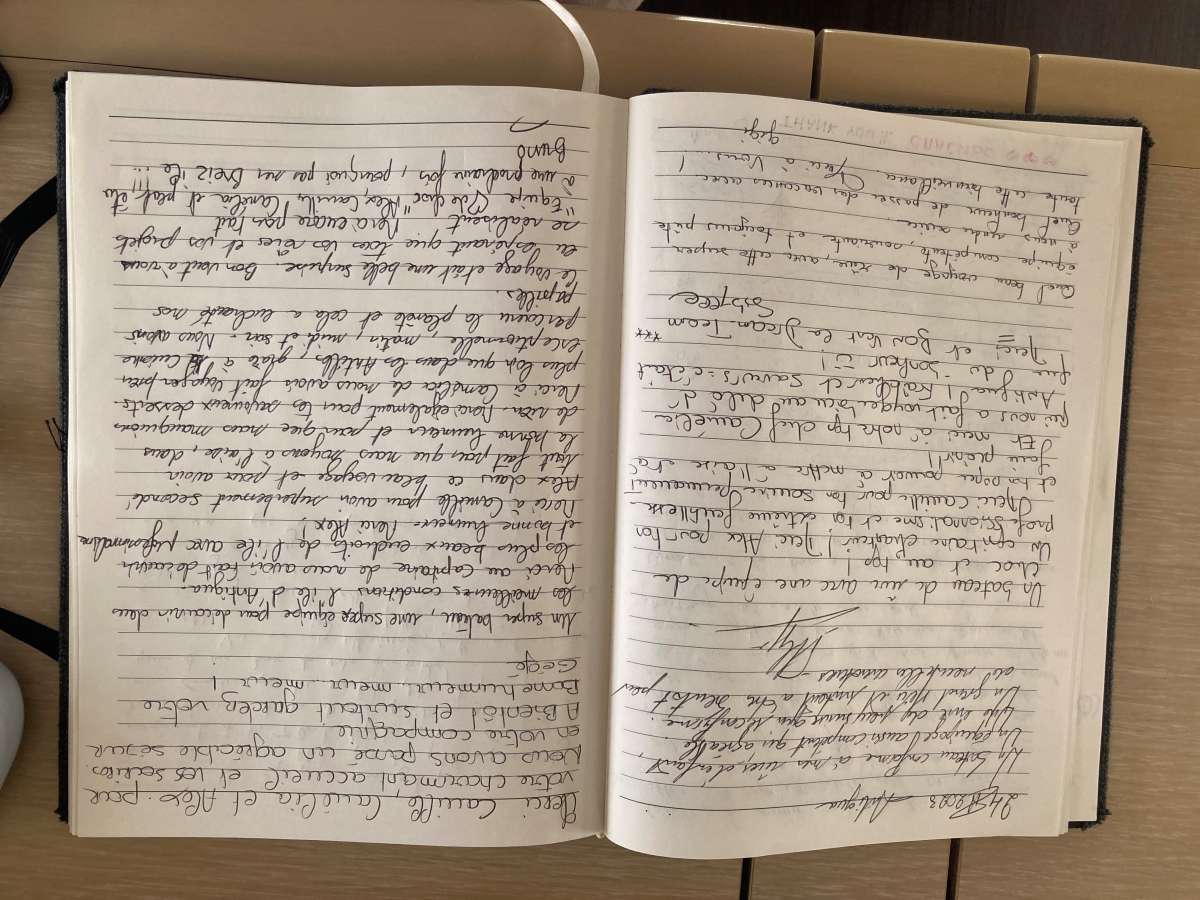 2023 Antigua
Un bateau conforme à mes rêves d'enfant,
Un équipage aussi compétent qu'agréable
Une envie de
Un grand Merci et surtout à très bientôt pour
de nouvelles aventures -
Un bateau de rêve avec une équipe de
choc et au top !
Un capitaine chapeau ! Merci Alex pour ton
professionnalisme et ta extrême gentillesse.
Merci Camille pour ton sourire permanent
et ta pouvoir à mettre à l'aise et à
faire plaisir !!
Et merci à notre top chef Camélia
qui nous a fait voyager au delà d'
Antigua ! Fraîcheur et saveurs : c'était
que du bonheur !
Merci et Bon Vent la Dream Team ***
Quel beau voyage de rêve, avec cette super
équipe compétente, souriante et toujours prête
à nous rendre service.
Quel bonheur de passer des vacances avec
toute cette bienveillance. Merci à Vous...!
gigi
THANK YOU
Merci Camille, Camélia et Alex pour
votre charmant accueil et vos sourires.
Nous avons passé un agréable séjour
en votre compagnie
A Bientôt et surtout gardez votre
Bonne humeur... meur... meur !
Gégé
Un super bateau, une super équipe pour découvrir dans
les meilleures conditions l'île d'Antigua.
Merci au Capitaine de nous avoir fait découvrir
les plus beaux endroits de l'île avec professionnalisme
et bonne humeur - Merci Alex !
Merci à Camille pour avoir superbement secondé
Alex dans ce beau voyage et pour avoir
tout fait pour que nous soyons à l'aise, dans
la bonne humeur et pour que nous manquions
de rien. Merci également pour les savoureux desserts.
Merci à Camélia de nous avoir fait voyager bien
plus loin que dans les Antilles, grâce à ta Cuisine
exceptionnelle, matin, midi et soir - Nous avons
parcouru la planète et cela a enchanté nos
papilles.
Ce voyage était une belle surprise. Bon vent à vous
en espérant que tous vos rêves et vos projets
se réalisent Merci encore pour tout
"Equipe de choc" Alex, Camille Camélia et peut être
à une prochaine fois, pourquoi pas sur Breiz Île !!!
Bruno